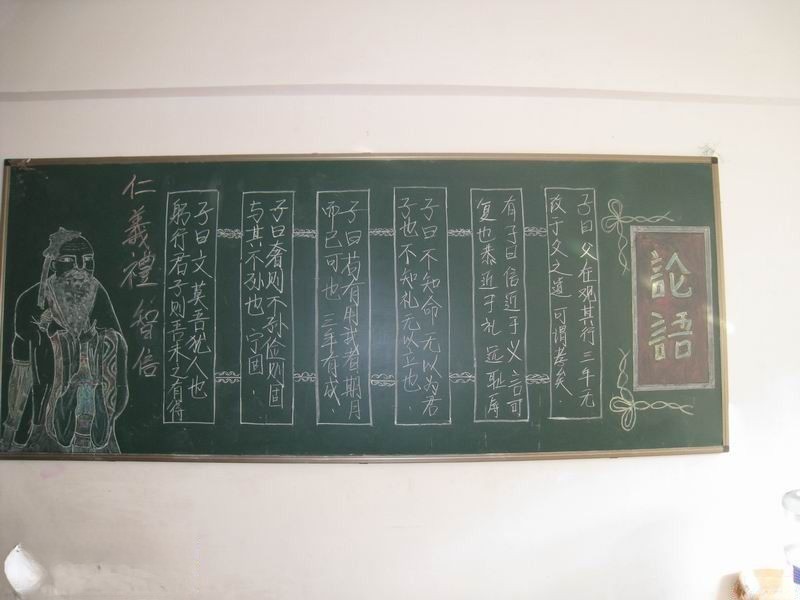 論語
子曰父在观其行三年无
改于父之道可谓孝矣
有子曰信近于义言可
复也恭近于礼远耻辱
子曰不知命无以为君
子也不知礼无以立也.
子曰苟有用我者期月
而已可也三年有成.
子曰奢则不孙俭则固
与其不孙也宁固.
子曰文莫吾犹人也
躬行君子则吾未之有得
仁義禮智信